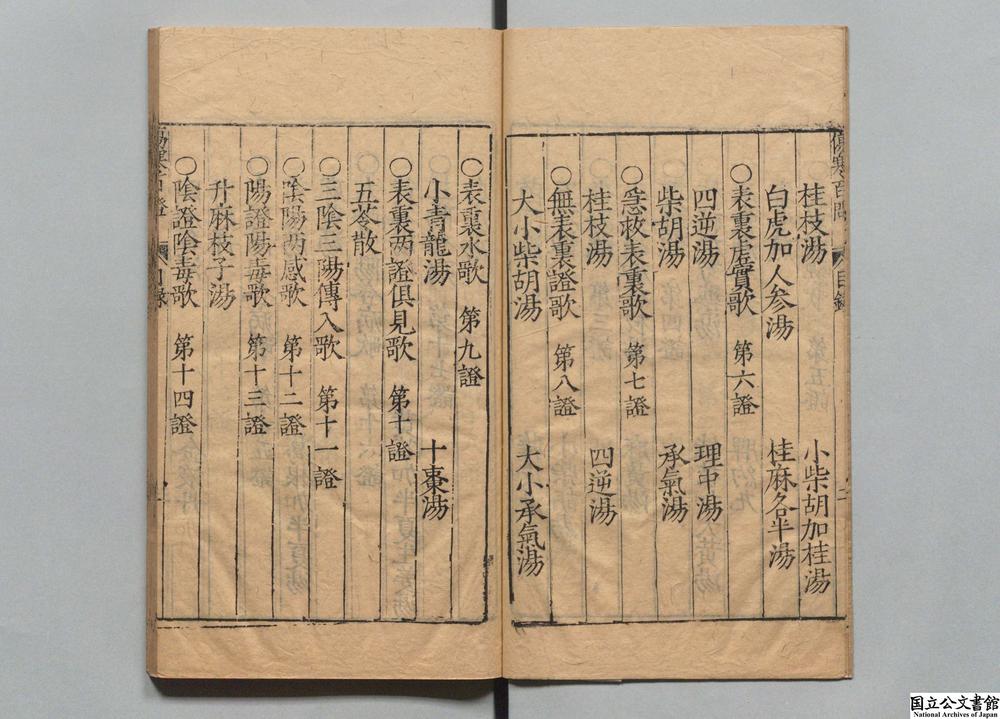 傷寒百問 目録 二
桂枝湯 小柴胡加桂湯
白虎加人參湯 桂麻各半湯
○表裏虛實歌 第六證
四逆湯 理中湯
柴胡湯 承氣湯
○急救表裏歌 第七證
桂枝湯 四逆湯
○無表裏證歌 第八證
大小柴胡湯 大小承氣湯
○表裏水歌 第九證
小青龍湯 十棗湯
○表裏两證俱見歌 第十證
五苓散
○三陰三陽傳入歌 第十一證
○陰陽两感歌 第十二證
○陽證陽毒歌 第十三證
升麻枝子湯
○陰證陰毒歌 第十四證
目録
国立公文書館
National Archives of Japan